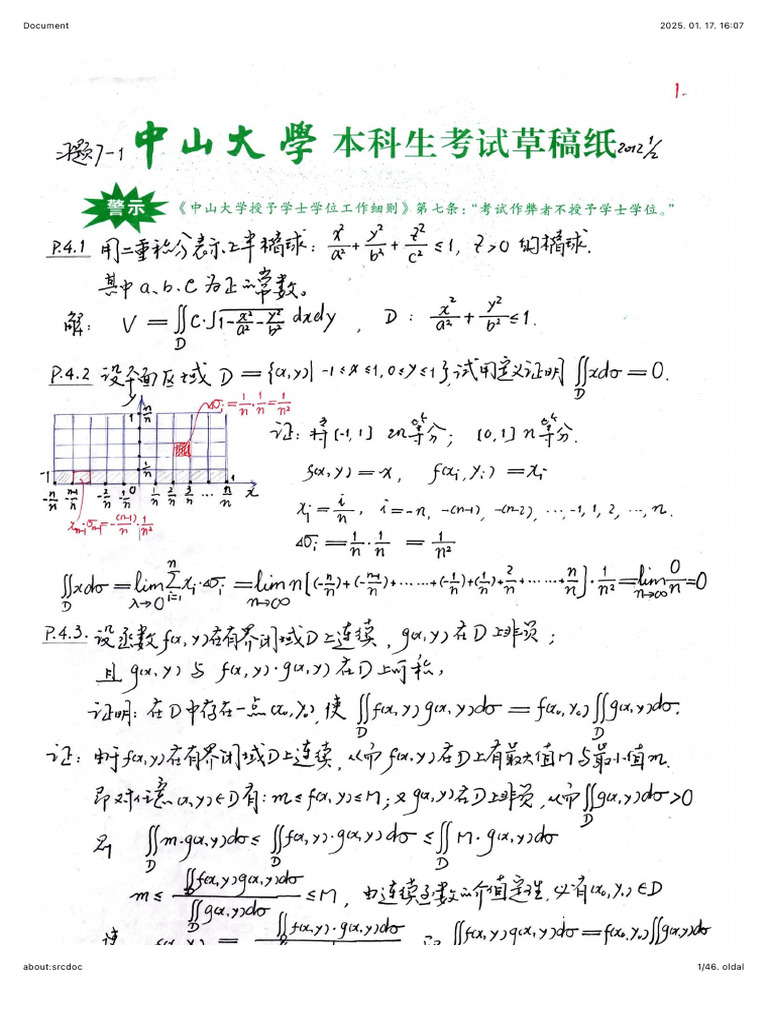 Document 2025. 01. 17. 16:07
1.
习题7-1 中山大學 本科生考试草稿纸 2012 1/2
警示 《中山大学授予学士学位工作细则》第七条:“考试作弊者不授予学士学位。”
P.4.1 用二重积分表示上半椭球: x²/a² + y²/b² + z²/c² ≤ 1, z>0 的椭球.
其中 a、b、c 为正的常数。
解: V = ∬_D c·√(1 - x²/a² - y²/b²) dxdy , D: x²/a² + y²/b² ≤ 1.
P.4.2 设平面区域 D = {(x,y)| -1≤x≤1, 0≤y≤1}, 试用定义证明 ∬_D xdσ = 0.
y 1 n/n Δσi = 1/n · 1/n = 1/n²
证: 将 [-1,1] 2n等分; [0,1] n等分.
f(x,y) = x, f(xi, yi) = xi
-1 1/n 1
-n/n -(n-1)/n -2/n -1/n 0 1/n 2/n 3/n … n/n x
xi = i/n, i = -n, -(n-1), -(n-2), …, -1, 1, 2, …, n.
x_{n-1}·σ_{n-1} = -(n-1)/n · 1/n²
Δσi = 1/n · 1/n = 1/n²
∬_D xdσ = lim_{λ→0} Σ_{i=1}^{n} xi·Δσi = lim_{n→∞} n[(-n/n)+(-(n-1)/n)+……+(-1/n)+(1/n)+2/n+……+n/n]·1/n² = lim_{n→∞} 0/n = 0
P.4.3. 设函数 f(x,y) 在有界闭域D上连续, g(x,y) 在D上非负;
且 g(x,y) 与 f(x,y)·g(x,y) 在D上可积,
证明: 在D中存在一点(x₀,y₀), 使 ∬_D f(x,y)g(x,y)dσ = f(x₀,y₀)∬_D g(x,y)dσ.
证: 由于 f(x,y) 在有界闭域D上连续, 从而 f(x,y) 在D上有最大值M与最小值m.
即对任意 (x,y)∈D 有: m ≤ f(x,y) ≤ M; 又 g(x,y) 在D上非负, 从而 ∬_D g(x,y)dσ > 0
则 ∬_D m·g(x,y)dσ ≤ ∬_D f(x,y)·g(x,y)dσ ≤ ∬_D M·g(x,y)dσ
m ≤ ∬_D f(x,y)g(x,y)dσ / ∬_D g(x,y)dσ ≤ M, 由连续函数的介值定理, 必有(x₀,y₀)∈D
使 f(x₀,y₀) = ∬_D f(x,y)·g(x,y)dσ ∬f(x,y)g(x,y)dσ = f(x₀,y₀)∬g(x,y)dσ
about:srcdoc 1/46. oldal